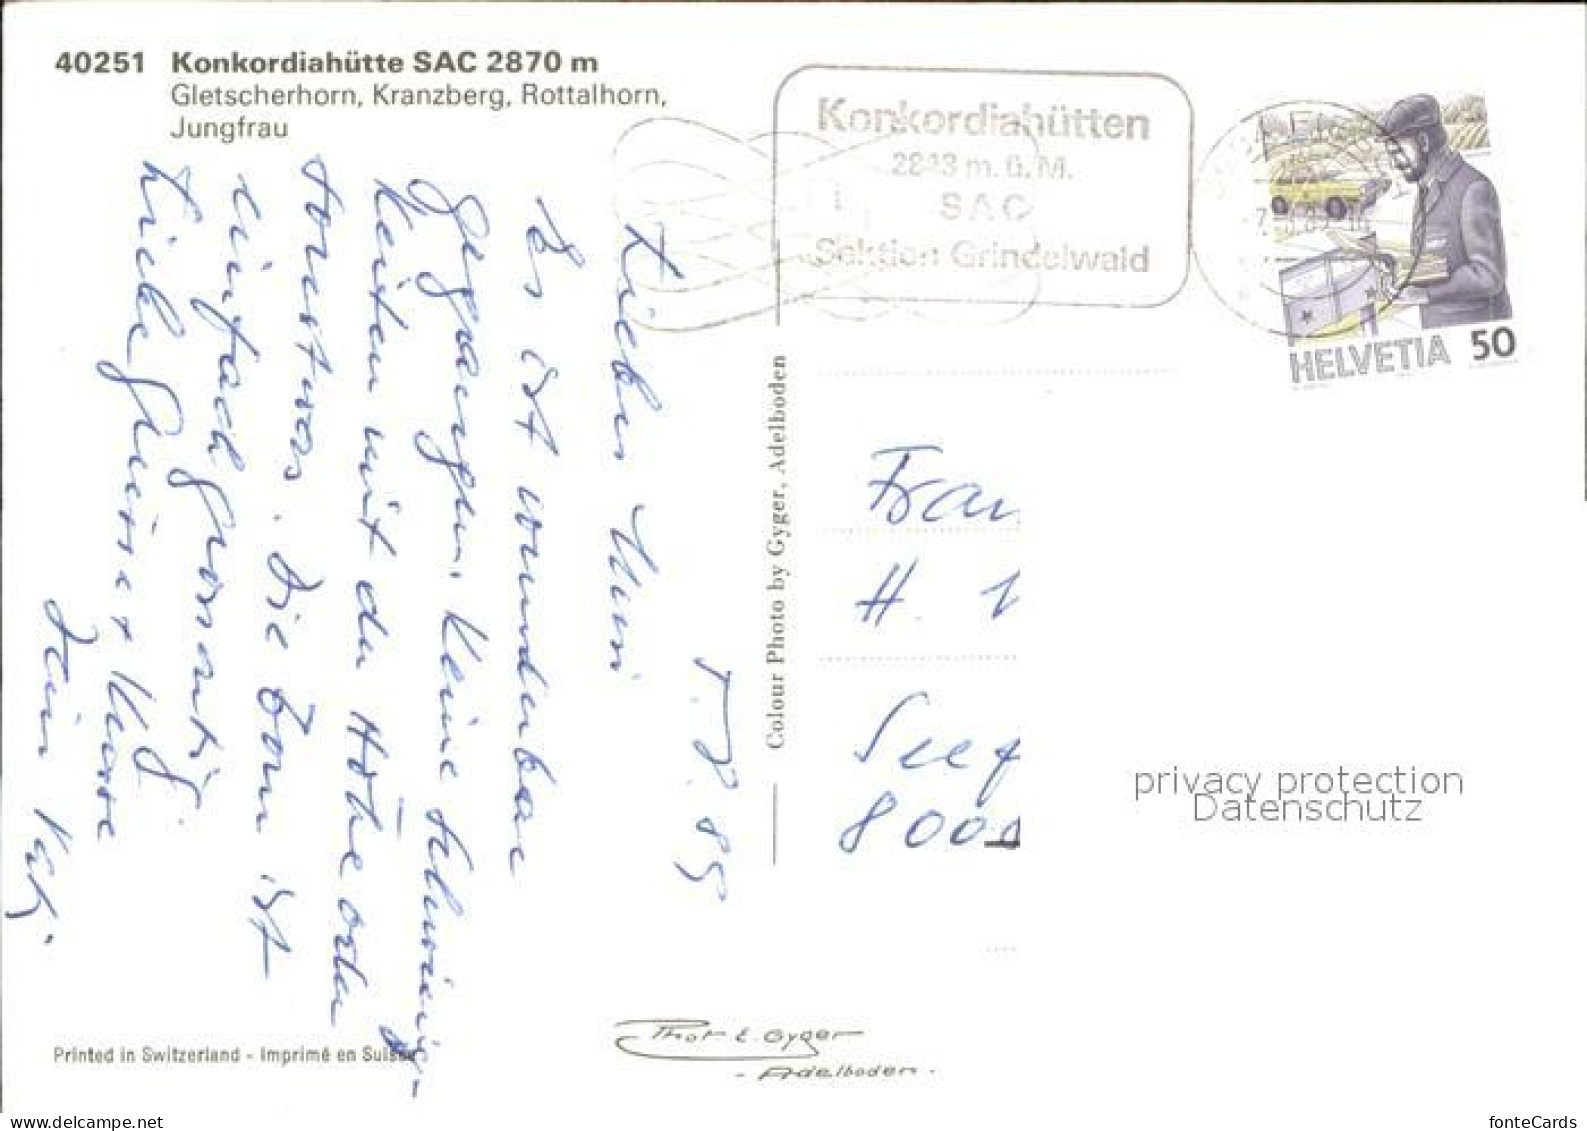 40251 Konkordiahütte SAC 2870 m
Gletscherhorn, Kranzberg, Rottalhorn,
Jungfrau
Konkordiahütten
2843 m.ü.M.
SAC
Sektion Grindelwald
HELVETIA 50
7. 8. 89
Es ist wunderbar
gegangen. Keine Schwierig-
keiten mit der Höhe oder
sonstwas. Die Tour ist
einfach grossartig
Liebe Grüsse +
Dein
Colour Photo by Gyger, Adelboden
H.
privacy protection
Datenschutz
Printed in Switzerland - Imprimé en Suisse
Phot E. Gyger
- Adelboden -
www.ansichtskartenversand.com
fonteCards